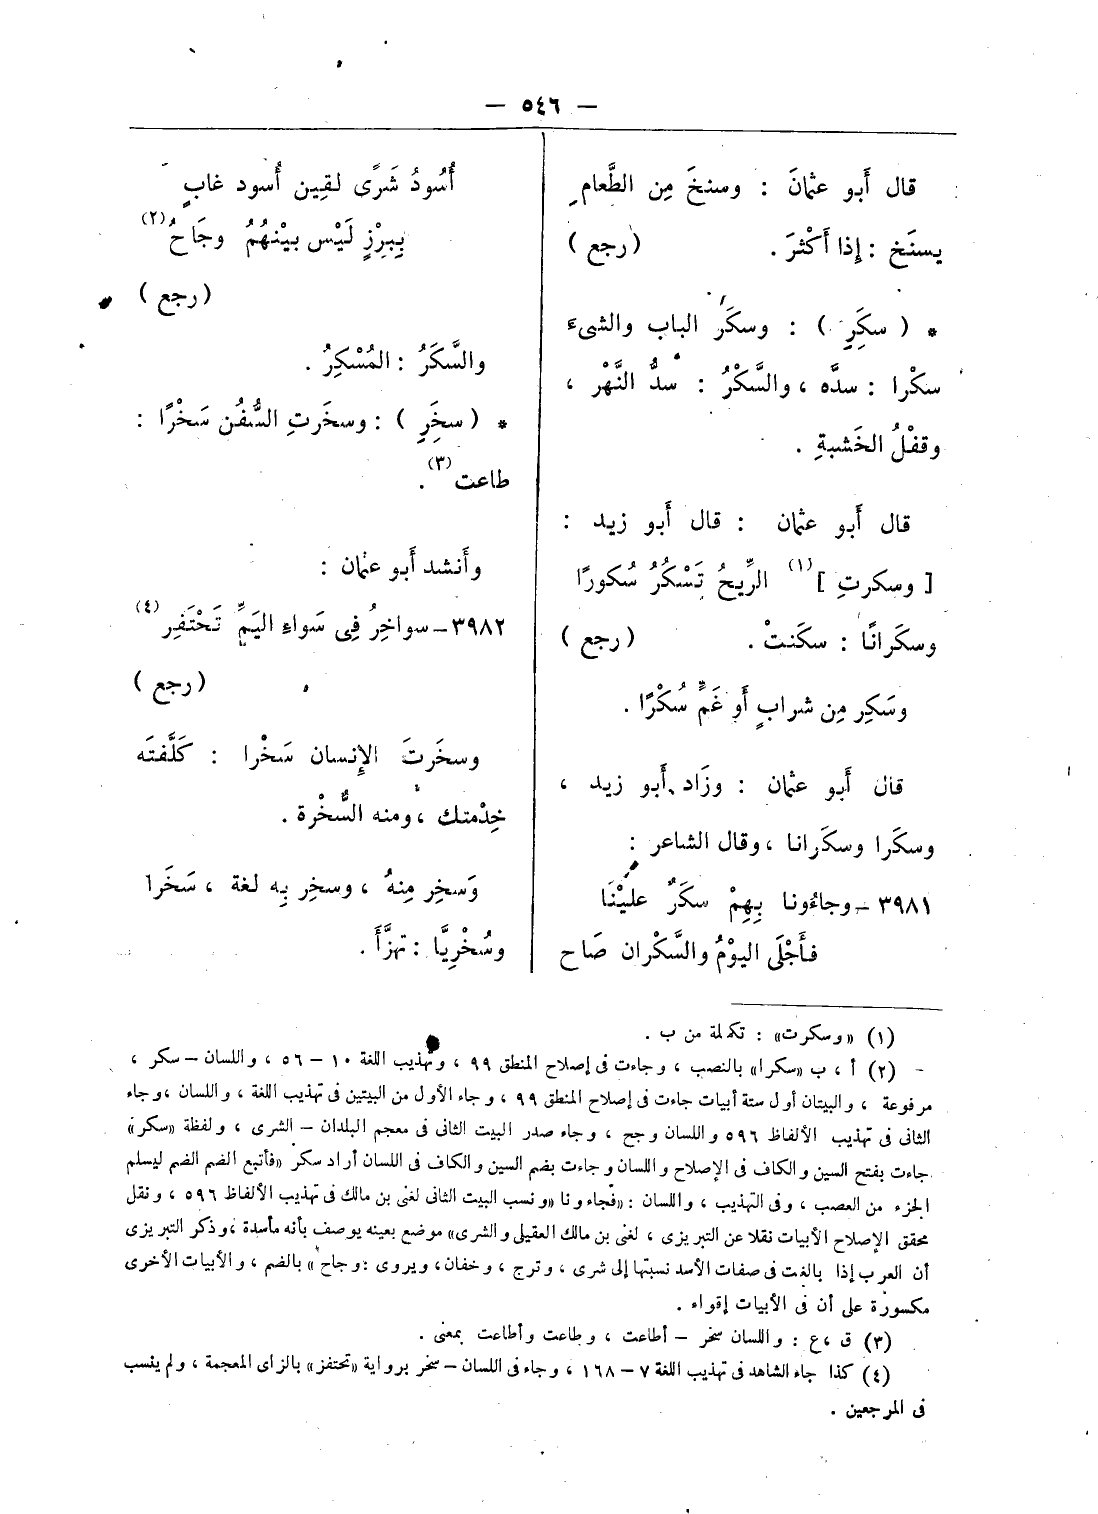 — ٥٤٦ —
قال أَبو عثمانَ : وسنخَ مِن الطَّعامِ
يسنَخ : إِذا أَكْثرَ . (رجع )
* ( سكَرِ ) : وسكَرَ الباب والشىءَ
سكْرا : سدَّه ، والسَّكْرُ : سدُّ النَّهْر ،
وقفْلُ الخَشبةِ .
قال أَبو عثمان : قال أَبو زيد :
[ وسكرتِ ](١) الرِّيحُ تَسْكُرُ سُكورًا
وسكَرانًا : سكَنتْ . (رجع )
وسَكِر مِن شرابٍ أَو غَمٍّ سُكْرًا .
قال أَبو عثمان : وزَاد أَبو زيد ،
وسكَرا وسكَرانا ، وقال الشاعر :
٣٩٨١ – وجاءُونا بِهِمْ سكَرٌ عليْنَا
فأَجْلَى اليوْمُ والسَّكْران صَاح
أُسُودُ شَرًى لقِين أُسود غابٍ
بِبِرْزٍ لَيْس بيْنهُمُ وجَاحُ(٢)
(رجع )
والسَّكَرُ : المُسْكِرُ .
* ( سخَرِ ) : وسخَرتِ السُّفُن سَخْرًا :
طاعت(٣) .
وأَنشد أَبو عثمان :
٣٩٨٢ – سواخِرُ فِى سَواءِ اليَمِّ تَحْتَفِر(٤)
(رجع )
وسخَرتَ الإِنسان سَخْرا : كَلَّفتَه
خِدْمتك ، ومنه السُّخْرة .
وَسخِر مِنهُ ، وسخِر بِه لغة ، سَخَرا
وسُخْرِيًّا : تهزَّأَ .
(١) «وسكرت» : تكملة من ب .
(٢) أ ، ب «سكرا» بالنصب ، وجاءت فى إصلاح المنطق ٩٩ ، وتهذيب اللغة ١٠ – ٥٦ ، واللسان – سكر ،
مرفوعة ، والبيتان أول ستة أبيات جاءت فى إصلاح المنطق ٩٩ ، وجاء الأول من البيتين فى تهذيب اللغة ، واللسان ، وجاء
الثانى فى تهذيب الألفاظ ٥٩٦ واللسان وجح ، وجاء صدر البيت الثانى فى معجم البلدان – الشرى ، ولفظة «سكر»
جاءت بفتح السين والكاف فى الإصلاح واللسان وجاءت بضم السين والكاف فى اللسان أراد سكر «فأتبع الضم الضم ليسلم
الجزء من العصب ، وفى التهذيب ، واللسان : «فجاءونا «ونسب البيت الثانى لغنى بن مالك فى تهذيب الألفاظ ٥٩٦ ، ونقل
محقق الإصلاح الأبيات نقلا عن التبريزى ، لغنى بن مالك العقيلى والشرى» موضع بعينه يوصف بأنه مأسدة ، وذكر التبريزى
أن العرب إذا بالغت فى صفات الأسد نسبتها إلى شرى ، وترج ، وخفان ، ويروى : وجاح» بالضم ، والأبيات الأخرى
مكسورة على أن فى الأبيات إقواء .
(٣) ق ، ع : واللسان سخر – أطاعت ، وطاعت وأطاعت بمعنى .
(٤) كذا جاء الشاهد فى تهذيب اللغة ٧ – ١٦٨ ، وجاء فى اللسان – سخر برواية «تحتفز» بالزاى المعجمة ، ولم ينسب
فى المرجعين .